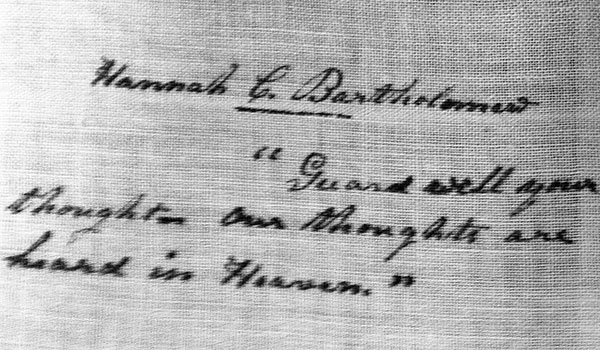 Hannah C. Bartholomew
"Guard well your
thoughts our thoughts are
heard in Heaven."